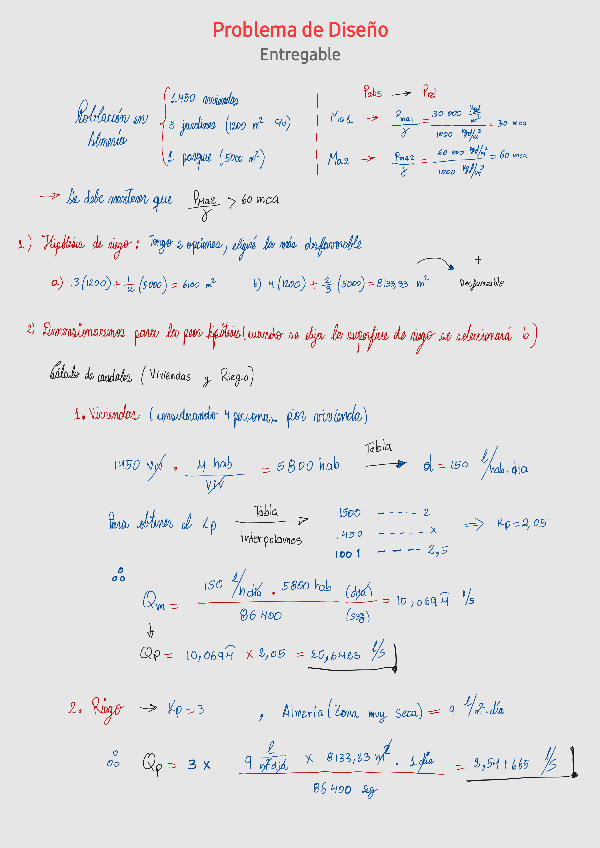 Problema de Diseño
Entregable
Población en Almería
1450 viviendas
3 jardines (1200 m² c/u)
1 parque (5000 m²)
Pabs → Prel
Ma1 → Pma1/γ = 30 000 kgf/m² / 1000 kgf/m³ = 30 mca
Ma2 → Pma2/γ = 60 000 kgf/m² / 1000 kgf/m³ = 60 mca
→ Se debe mantener que Pma2/γ > 60 mca
1) Hipótesis de riego: Tengo 2 opciones, eligiré la más desfavorable
a) 3(1200) + 1/2 (5000) = 6100 m² b) 4(1200) + 2/3 (5000) = 8133,33 m² + Desfavorable
2) Dimensionaremos para la peor hipótesis (cuando se elija la superficie de riego se seleccionará b)
Cálculo de caudales (Viviendas y Riego)
1. Viviendas (considerando 4 personas por vivienda)
1450 viv · 4 hab/viv = 5800 hab Tabla → d = 150 l/hab.día
Para obtener el Kp Tabla interpolamos → 1500 ----- 2
.450 ----- x ⇒ Kp = 2,05
1001 ---- 2,5
∴ Qm = 150 l/h día · 5800 hab / 86 400 (día)/(seg) = 10,0694 l/s
Qp = 10,0694 × 2,05 = 20,6423 l/s
2. Riego → Kp = 3 , Almería (Zona muy seca) = 9 l/m².día
∴ Qp = 3 × 9 l/m² día × 8133,33 m² · 1 día / 86 400 seg = 2,541665 l/s